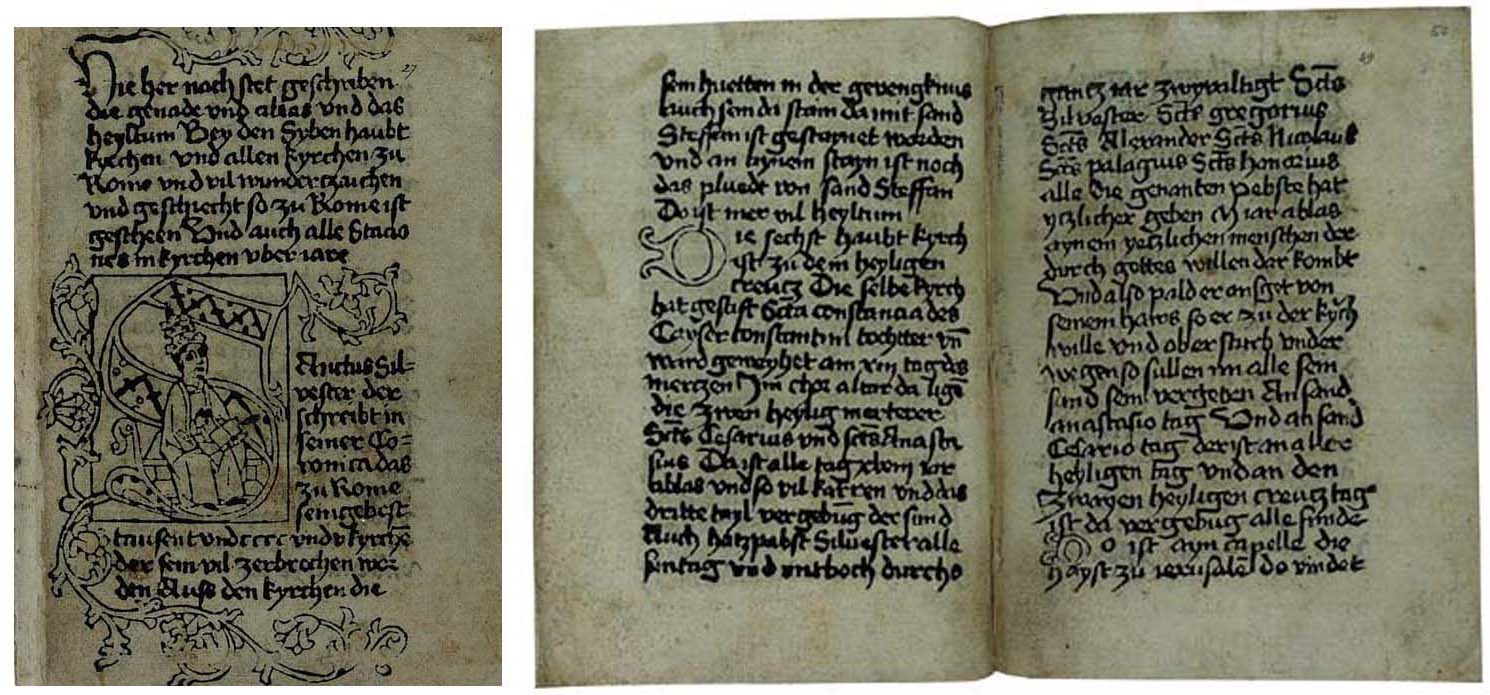 27
Hie her nach stet geschriben
die genade und ablas vnd das
heyltum Bey den Syben haubt
kyrchen vnd allen kyrchen zu
Rome vnd vil wunderczaichen
vnd geschiecht so zu Rome ist
gescheen Vnd auch alle Stacio
nes in kyrchen vber iare
Anctus Sil-
vester der
schreibt in
seiner Co-
ronica das
zu Rome
sein gebest
tausent vnd cccc vnd v kyrchē
der sein vil zerbrochen wor
den Auss den kyrchen die
sein huetten in der gevengknus
Auch sein da stain da mit sand
Steffan ist gestaynet worden
vnd an aynem stayn ist noch
das pluedt von sand Steffan
Do ist mer vil heyltum
Die sechst haubt kyrch
ist zu dem heyligen
creutz Die selbe kyrch
hat gestift Scta constancia des
Cayser constantini tochtter vn̄
ward geweyhet am xiii tag des
mertzen Im chor altar da ligē
die zwen heylig merterer
Scts Cesarius vnd scts Anasta
sius Da ist alle tag xlviii iar
ablas vnd so vil karren vnd das
dritte tayl vergebūg der sund
Auch hat pabst Siluester alle
suntag vnd mitboch durchs
50
49
gantz iar zwyvaltigt Scts
Silvester Scts gregorius
Scts Alexander Scts Nicolaus
Scts palagius Scts honorius
alle die genanten pebste hat
yczlicher geben M iar ablas
aynem yetzlichen menschen der
durch gottes willen dar kombt
Vnd also pald er ausget von
seinem haws so er zu der kyrch
wille vnd ob er sturb vnder
wegen so sullen im alle sein
sund sein vergeben An sand
anastasio tag Vnd an sand
Cesario tag der ist an aller
heyligen tag vnd an den
Zwayen heyligen creutz tag
ist da vergebūg alle sunde
Do ist ayn capelle die
hayst zu ierusalē do vindet